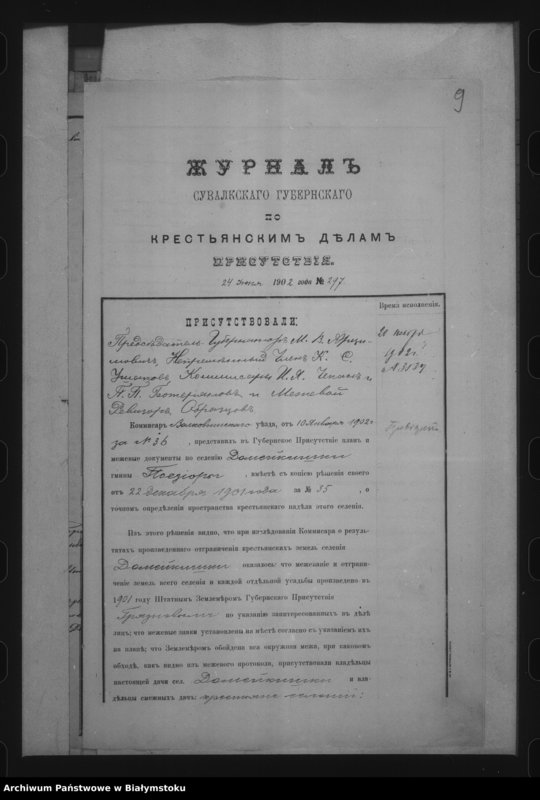 9
ЖУРНАЛЪ
СУВАЛКСКАГО ГУБЕРНСКАГО
ПО
КРЕСТЬЯНСКИМЪ ДѢЛАМЪ
ПРИСУТСТВІЯ.
1902 года № 297.
Время исполненія.
ПРИСУТСТВОВАЛИ:
Предсѣдатель Губернаторъ М. В.
Непремѣнный Членъ К. С.
Коммисары И. А.
П. П. и Межевой
Ревизоръ Образцовъ
1902 г.
Комисаръ Волковышскаго уѣзда, отъ 10 Января 1902 г.
за № 36, представилъ въ Губернское Присутствіе планъ и
межевые документы по селенію Домейкишки
гмины, вмѣстѣ съ копіею рѣшенія своего
отъ 22 декабря 1901 года за № 35, о
точномъ опредѣленіи пространства крестьянскаго надѣла этого селенія.
Изъ этого рѣшенія видно, что при изслѣдованіи Комисара о резуль-
татахъ произведеннаго отграниченія крестьянскихъ земель селенія
Домейкишки оказалось: что межеваніе и отграни-
ченіе земель всего селенія и каждой отдѣльной усадьбы произведено въ
1901 году Штатнымъ Землемѣромъ Губернскаго Присутствія
по указанію заинтересованныхъ въ дѣлѣ
лицъ; что межевые знаки установлены на мѣстѣ согласно съ указаніемъ ихъ
на планѣ; что Землемѣромъ обойдена вся окружная межа, при каковомъ
обходѣ, какъ видно изъ межеваго протокола, присутствовали владѣльцы
настоящей дачи сел. Домейкишки и вла-
дѣльцы смежныхъ дачъ: крестьяне селеній:
Archiwum Państwowe w Białymstoku